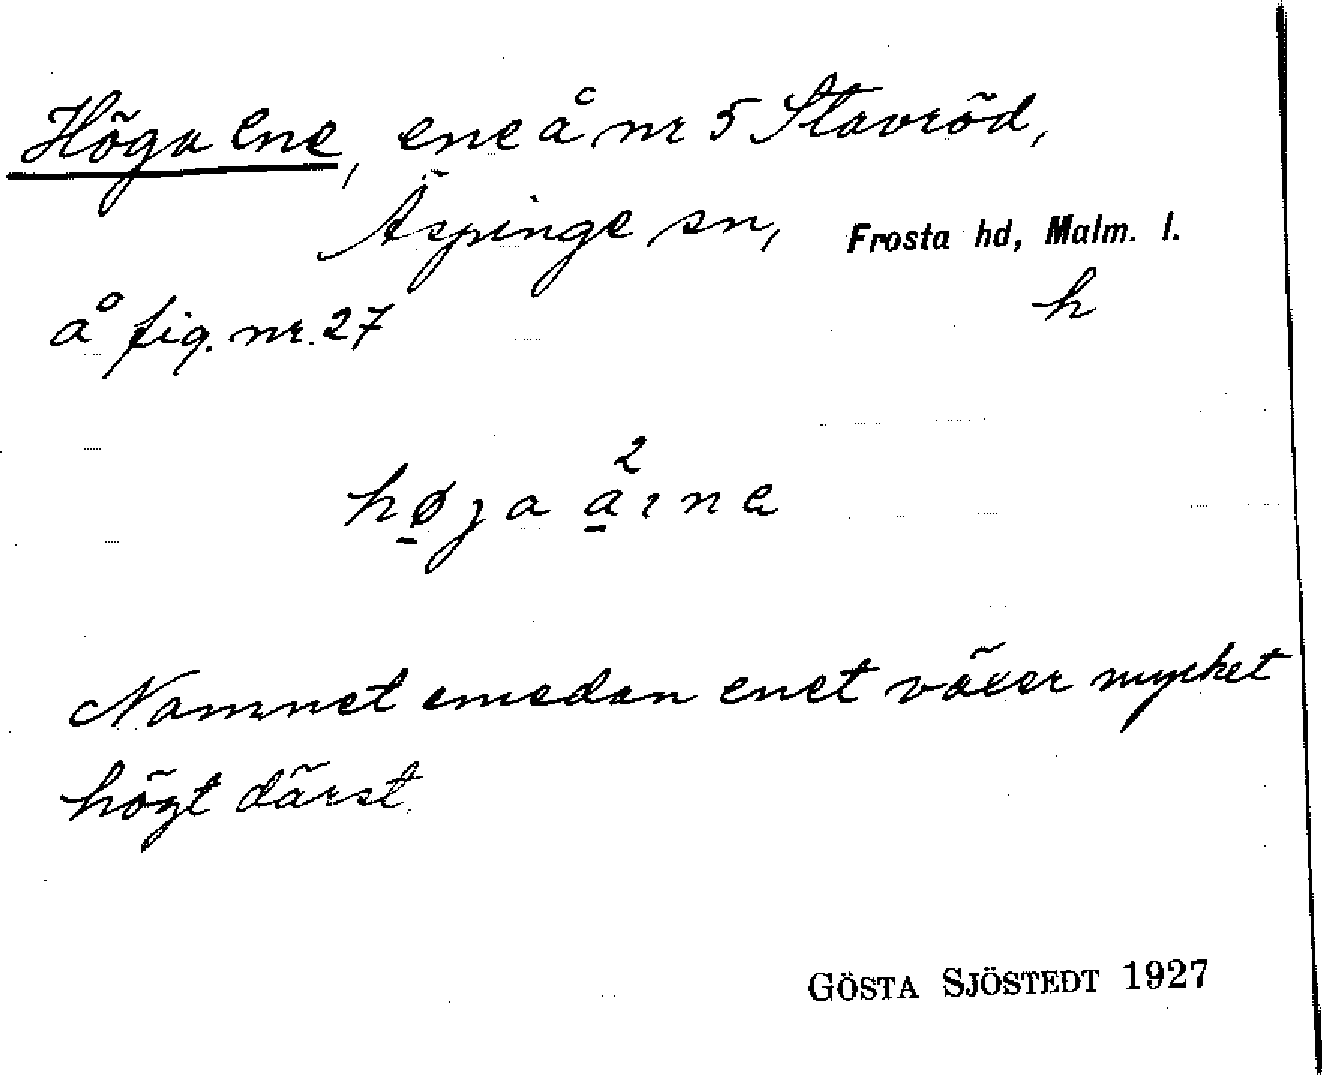 Höga ene, ene å nr 5 Stavröd,
Äspinge sn, Frosta hd, Malm. l.
å fig. nr. 27 h
2
høja aine
Namnet emedan enet växer mycket
högt därst.
GÖSTA SJÖSTEDT 1927